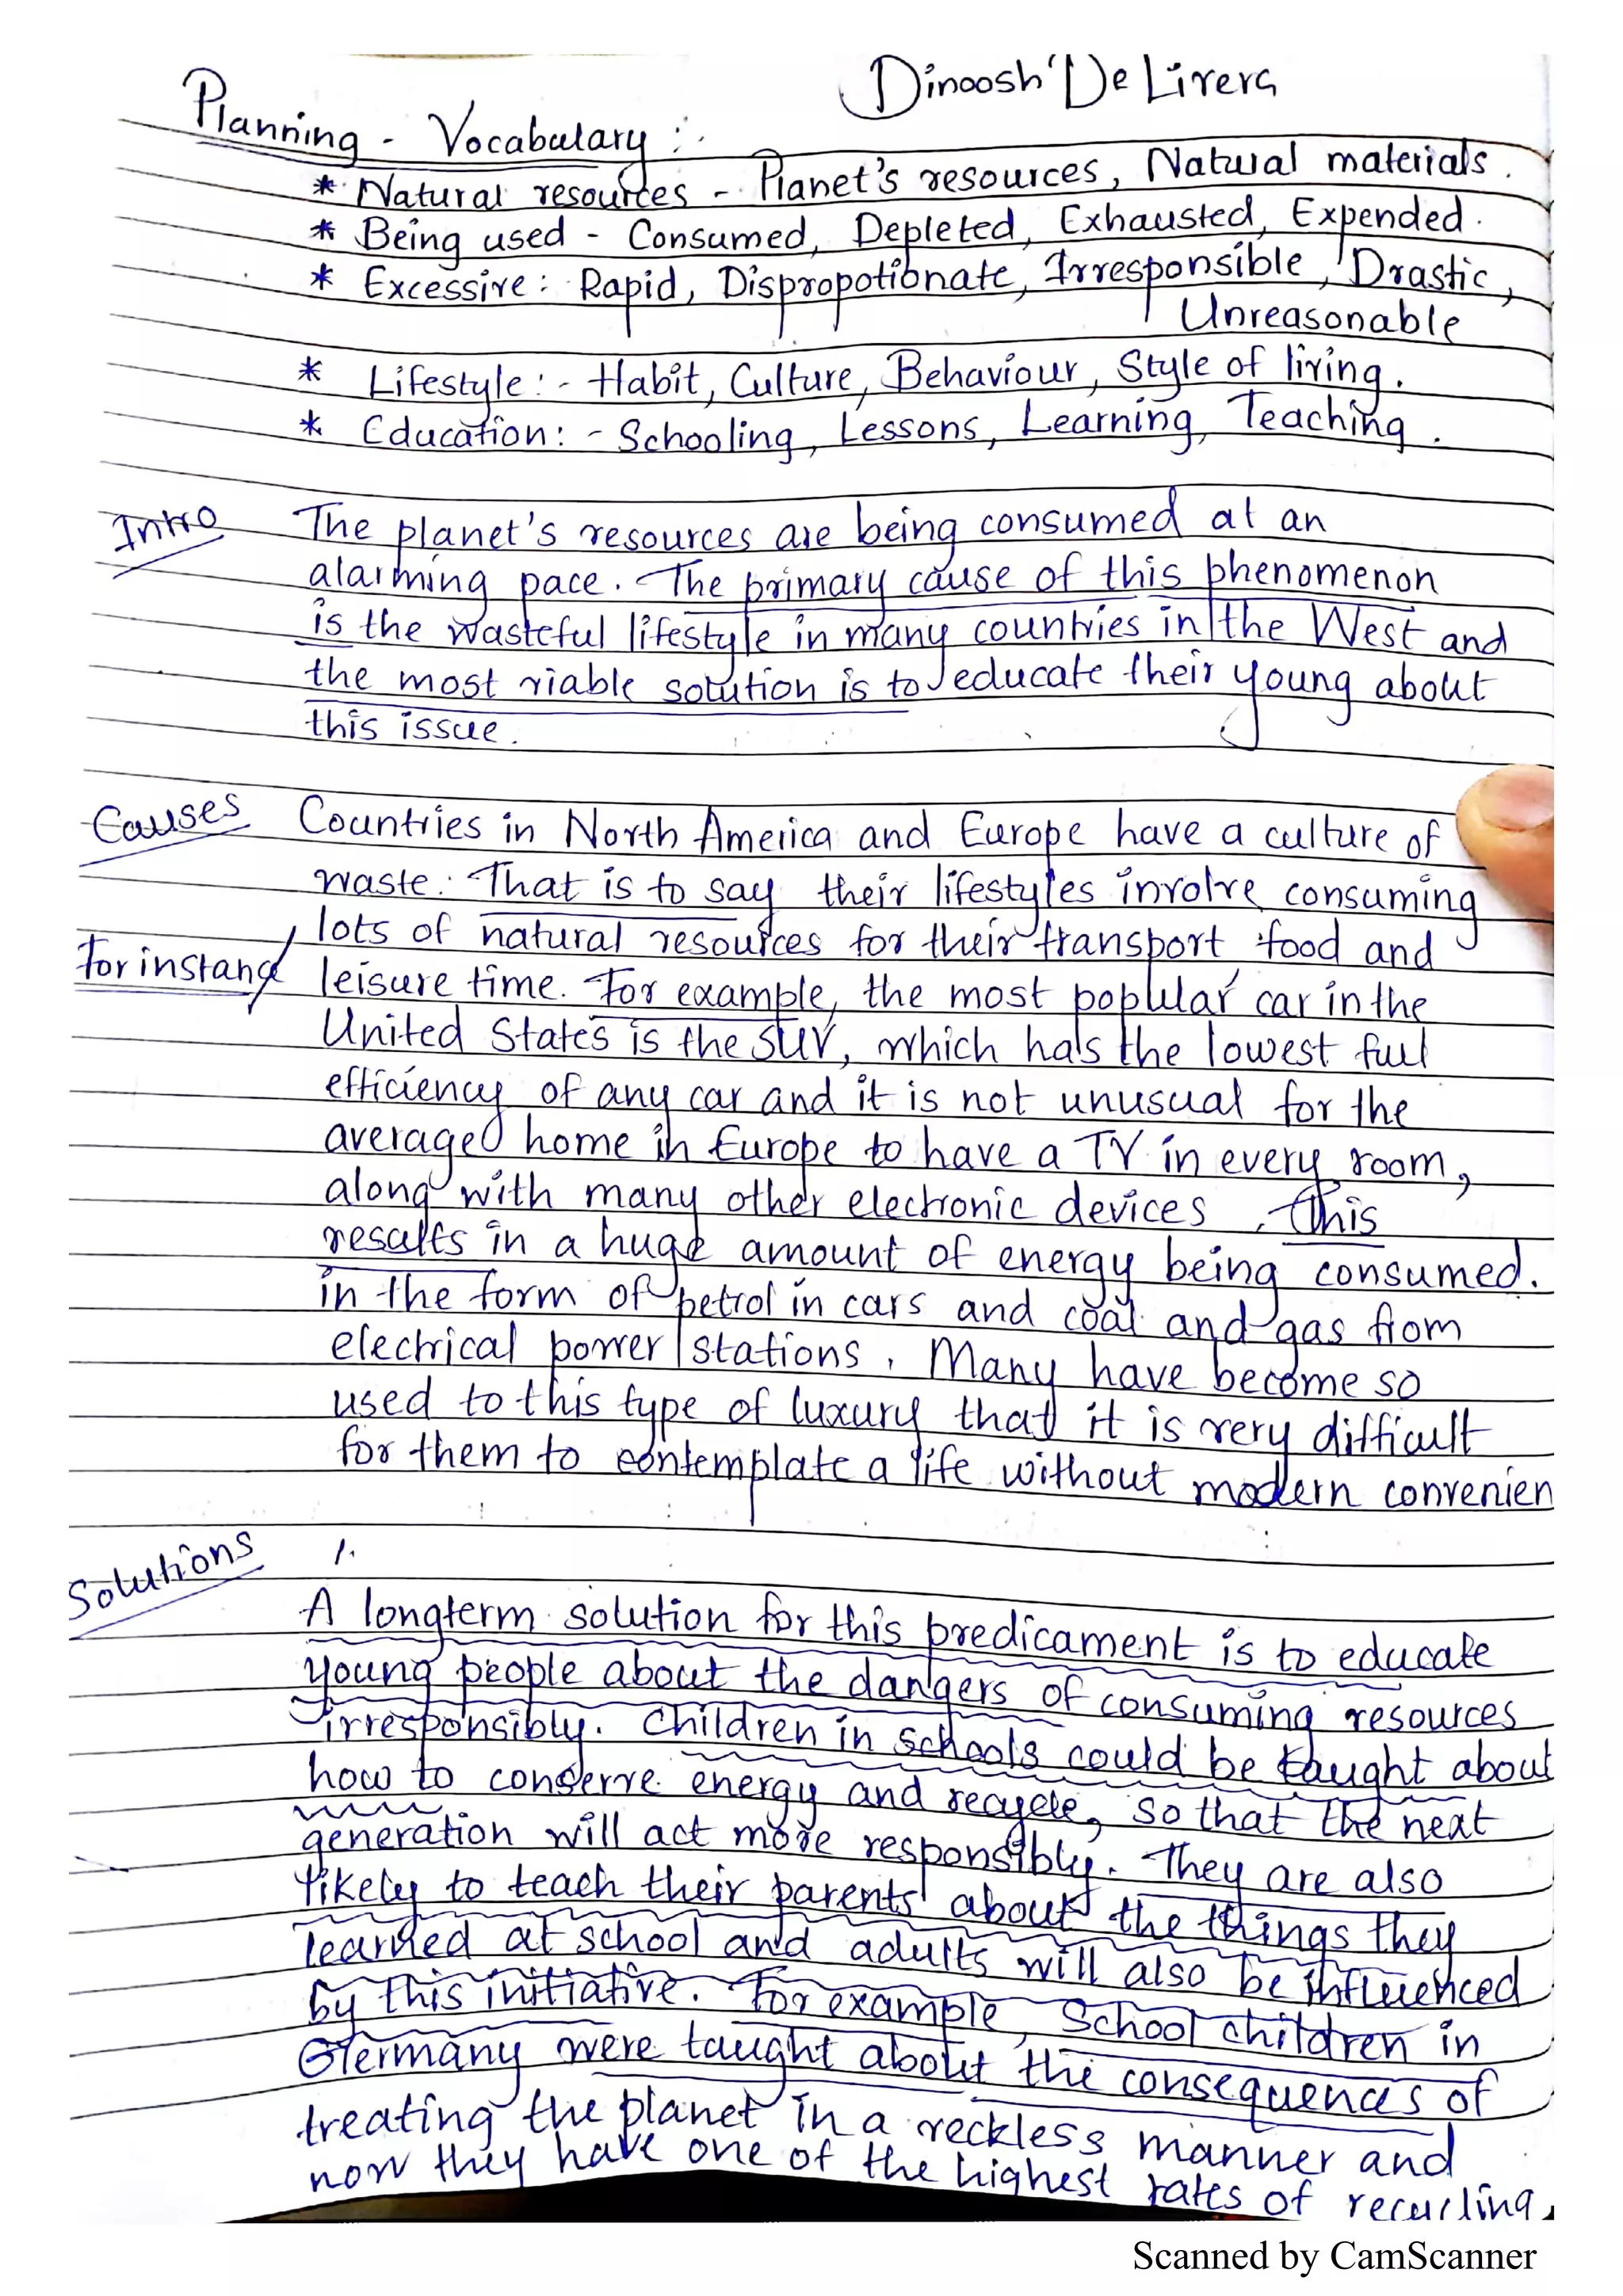 Dinoosh De Livera
Planning - Vocabulary :-
* Natural resources - Planet's resources, Natural materials.
* Being used - Consumed, Depleted, Exhausted, Expended.
* Excessive: Rapid, Dispropotionate, Irresponsible, Drastic,
Unreasonable
* Lifestyle: - Habit, Culture, Behaviour, Style of living.
* Education: - Schooling, Lessons, Learning, Teaching.
Intro
The planet's resources are being consumed at an
alarming pace. The primary cause of this phenomenon
is the wasteful lifestyle in many countries in the West and
the most viable solution is to educate their young about
this issue.
Causes
Countries in North America and Europe have a culture of
waste. That is to say their lifestyles involve consuming
lots of natural resources for their transport food and
For instance
leisure time. For example, the most poplular car in the
United States is the SUV, which has the lowest fuel
efficiency of any car and it is not unusual for the
average home in Europe to have a TV in every room,
along with many other electronic devices. This
results in a huge amount of energy being consumed.
in the form of petrol in cars and coal and gas from
electrical power stations. Many have become so
used to this type of luxury that it is very difficult
for them to contemplate a life without modern convenien
Solutions
1.
A longterm solution for this predicament is to educate
young people about the dangers of consuming resources
irresponsibly. Children in schools could be taught about
how to conserve energy and recycle, so that the next
generation will act more responsibly. They are also
likely to teach their parents about the things they
learned at school and adults will also be influenced
by this initiative. For example, School children in
Germany were taught about the consequences of
treating the planet in a reckless manner and
now they have one of the highest rates of recycling.
Scanned by CamScanner